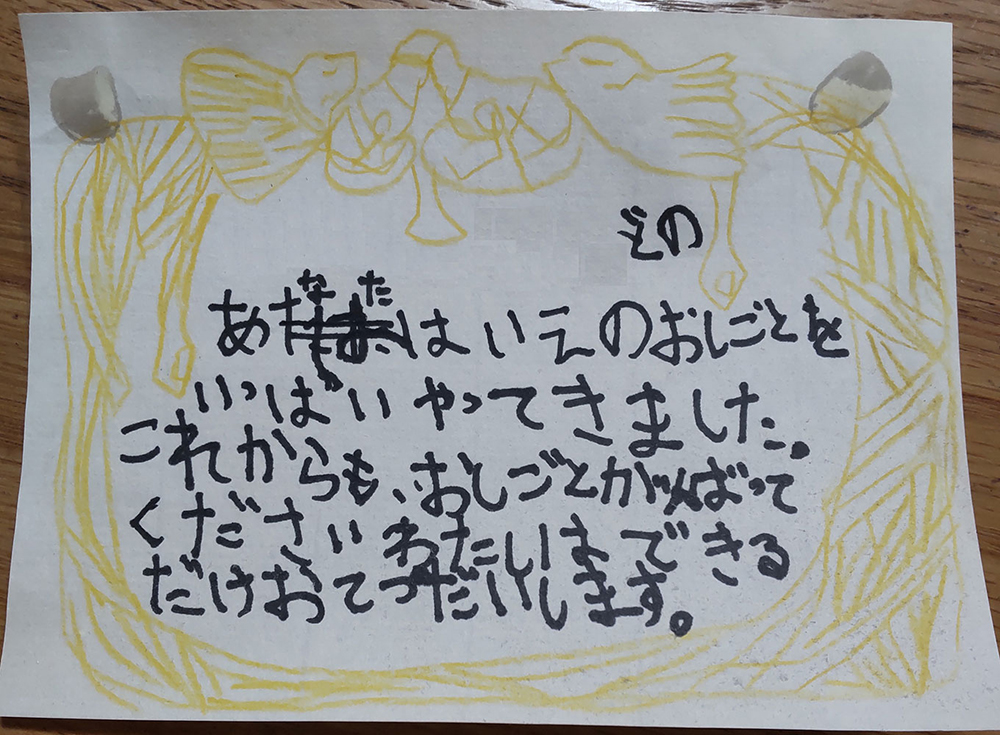 どの
あなたはいえのおしごとを
いっぱいやってきました。
これからも、おしごとがんばって
くださいわたしはできる
だけおてつだいします。